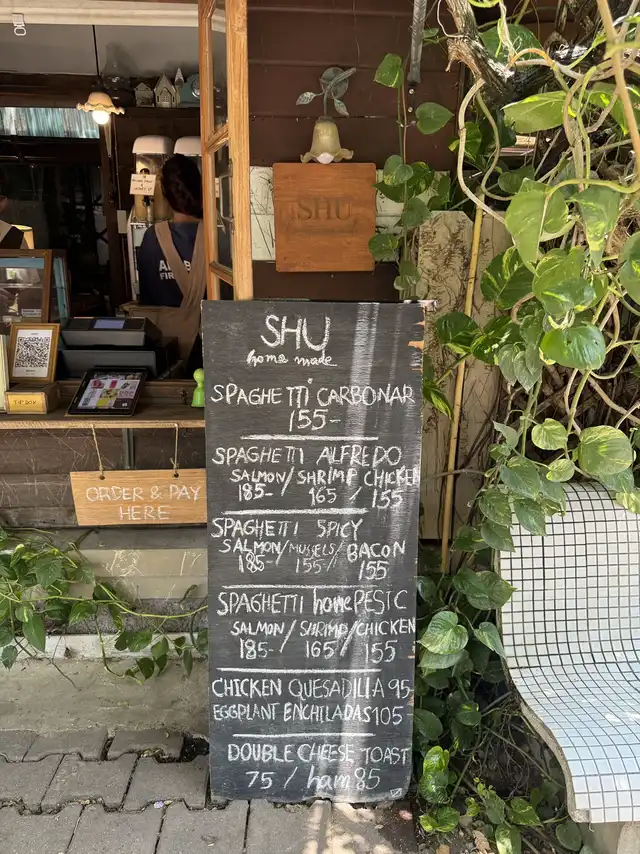 SHU
SHU
home made
SPAGHETTI CARBONAR
155-
SPAGHETTI ALFREDO
SALMON/SHRIMP/CHICKEN
185- / 165 / 155
SPAGHETTI SPICY
SALMON/MUSSELS/BACON
185- 155-/ 155
SPAGHETTI home PESTC
SALMON/SHRIMP/CHICKEN
185- / 165 / 155
CHICKEN QUESADILLA 95-
EGGPLANT ENCHILADAS 105-
DOUBLE CHEESE TOAST
75 / ham 85
ORDER & PAY
HERE
TIP BOX